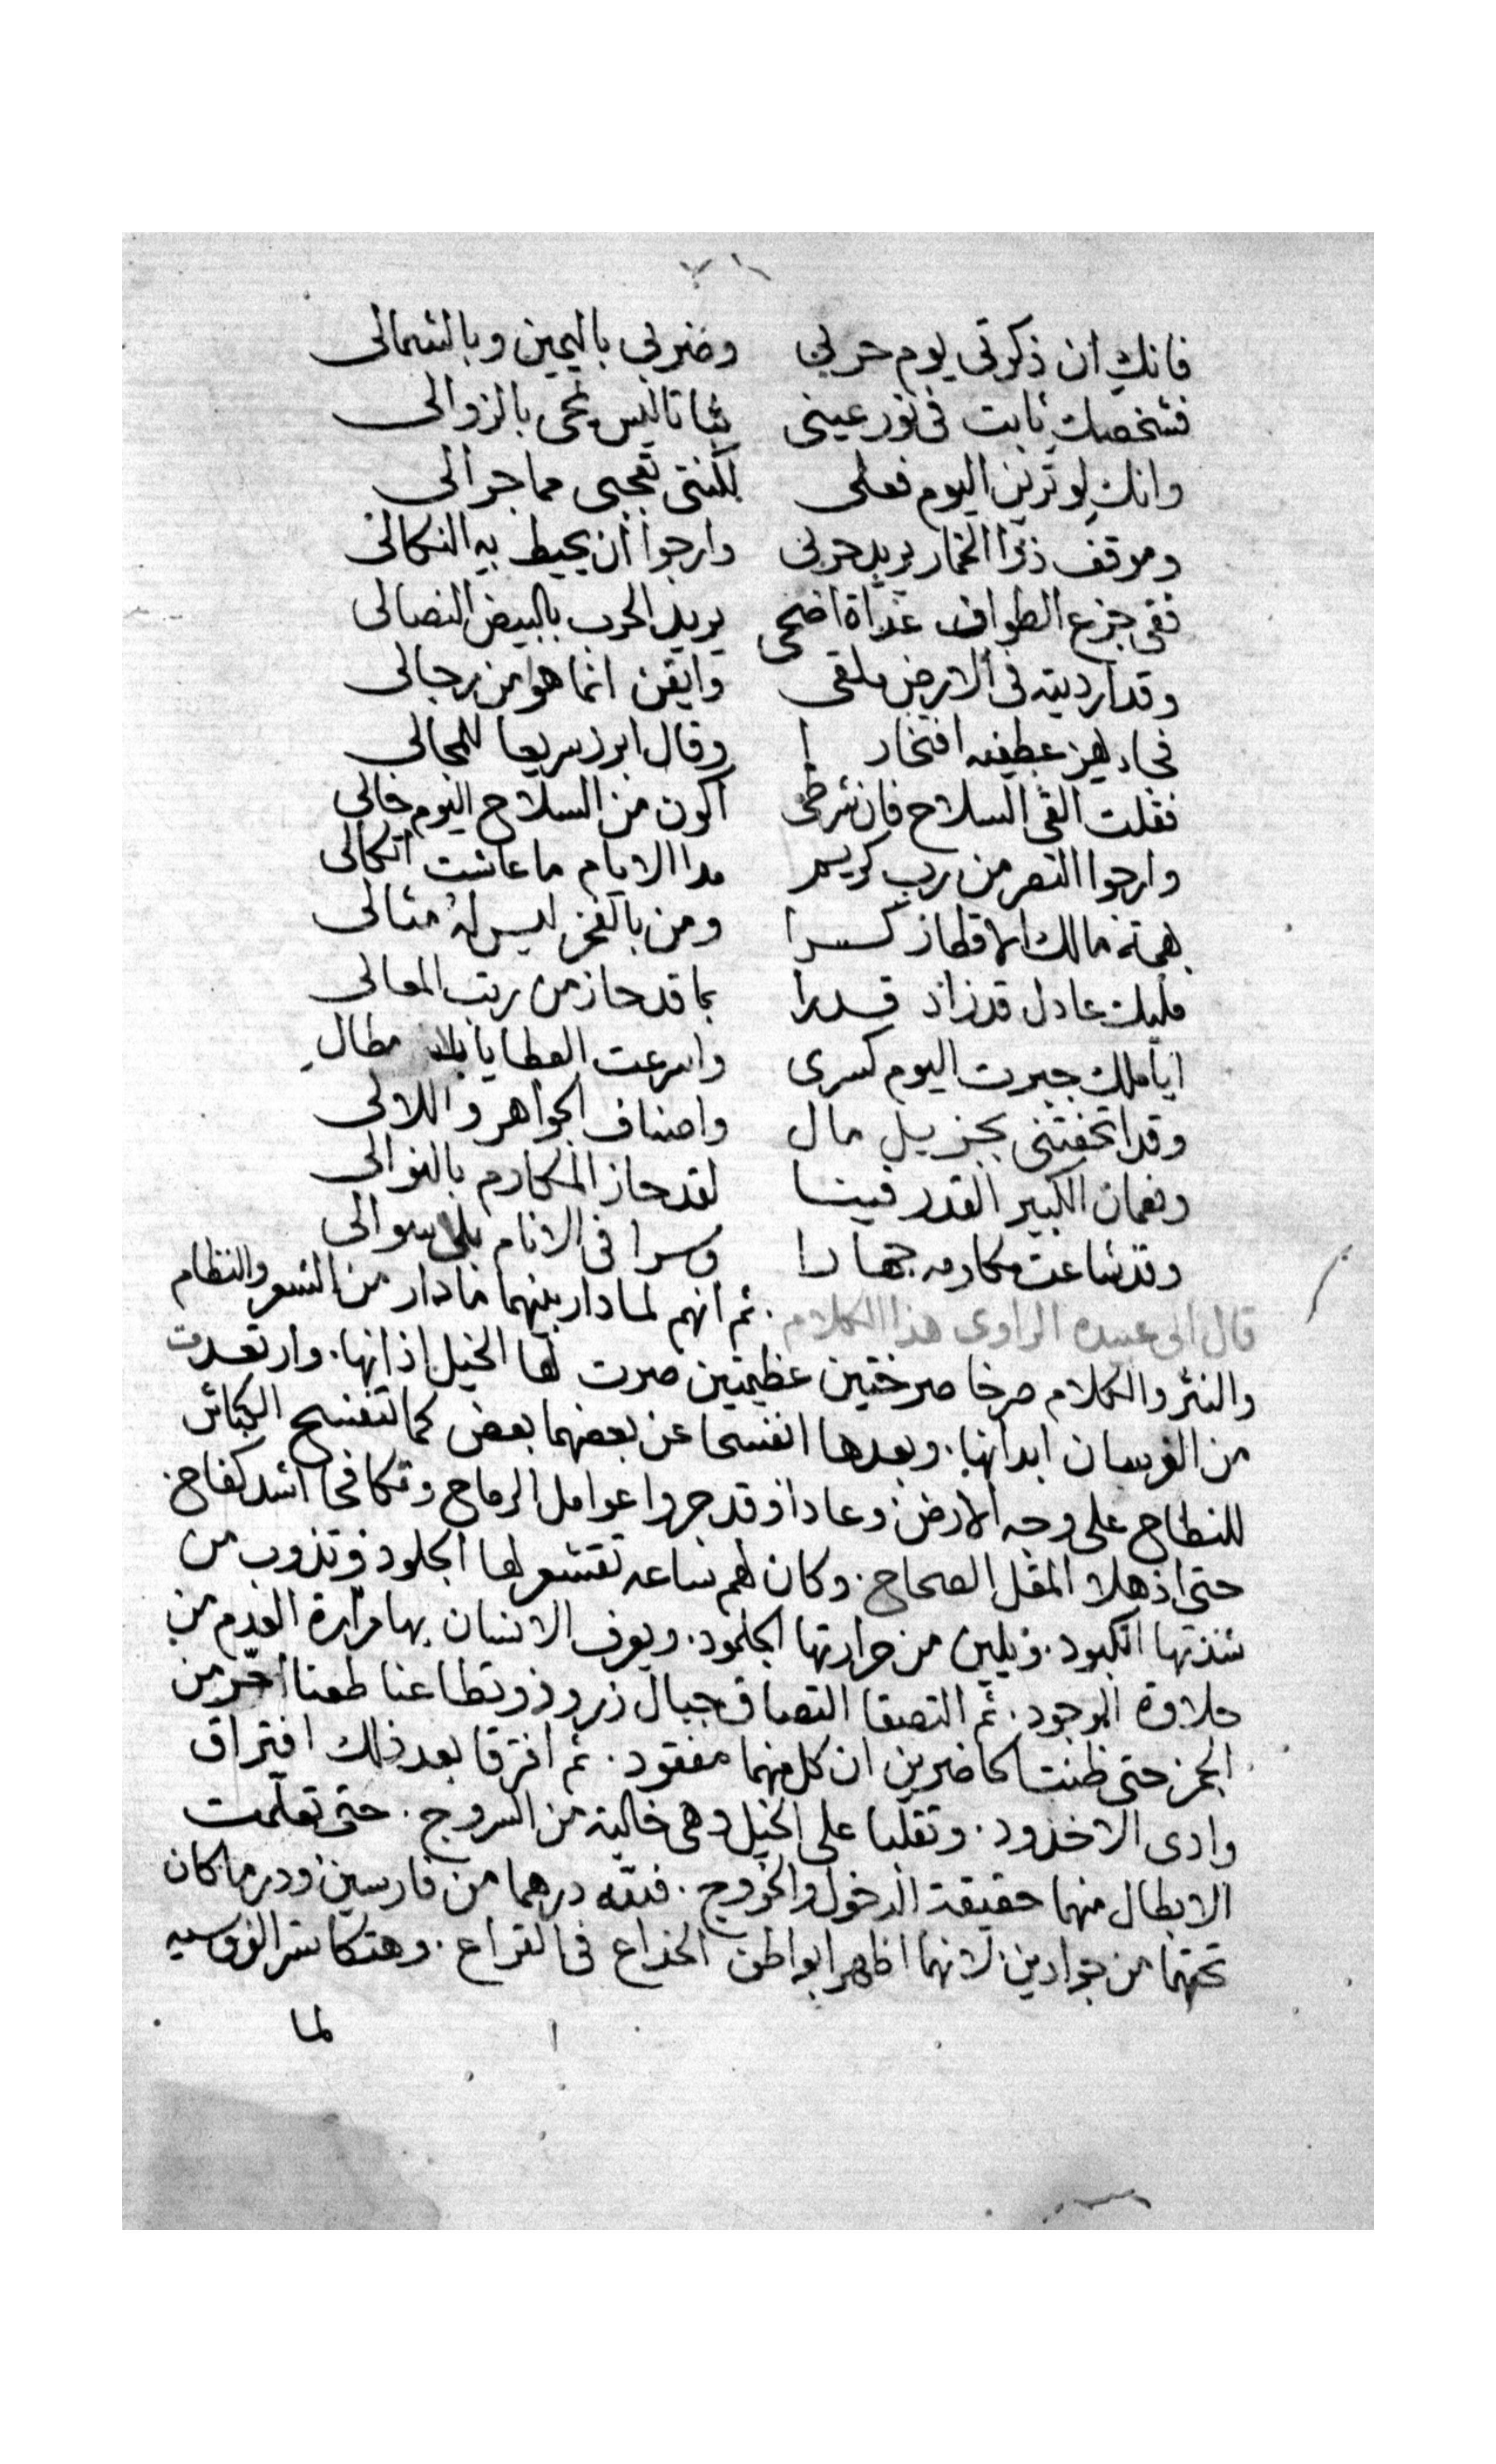 فانك ان ذكرتى يوم حربى وضربى باليمين وبالشمالى
فشخصك ثابت فى نور عينى ثباتا ليس يمحى بالزوالى
وانك لو ترين اليوم فعلى لكنتى تعجبى مما جرالى
وموقف ذوا الخمار يريد حربى وارجوا ان يحيط به النكالى
ففى جزع الطواف غداة اضحى يريد الحرب بالبيض النصالى
وقد ارديته فى الارض ملقى وايقن انما هو من رجالى
فجاد يهز عطفيه افتخار ا وقال ابرز سريعا للمجالى
فقلت القى السلاح فان شرطى اكون من السلاح اليوم خالى
وارجوا النصر من رب كريم مدا الايام ما عاشت اتكالى
بهمة مالك الاقطار كسرا ومن بالفخر ليس له مثالى
مليك عادل قد زاد قدرا بما قد حاز من رتب المعالى
ايا ملك جبرت اليوم كسرى واسرعت العطايا بلا مطال
وقد اتحفتنى بجزيل مال واصناف الجواهر واللالى
ونعمان الكبير القدر فينا لقد حاز المكارم بالنوالى
وقد شاعت مكارمه جهارا وسرا فى الانام بلا سوالى
قال ابى عبيده الراوى هذا الكلام . ثم انهم لما دار بينهما ما دار من الشعر والنظام
والنثر والكلام صرخا صرختين عظيمتين صرت لها الخيل اذانها . وارتعدت
من الفرسان ابدانها . وبعدها انفسحا عن بعضهما بعض كما تنفسح الكباش
للنطاح على وجه الارض وعادا وقد جروا عوامل الرماح وتكافحا اشد كفاح
حتى اذهلا المقل الصحاح . وكان لهم ساعه تقشعر لها الجلود وتذوب من
شدتها الكبود . ويلين من حرارتها الجلمود . ويعرف الانسان بها مرارة العدم من
حلاوة الوجود . ثم التصقا التصاق جبال زرود وتطاعنا طعنا احر من
الجمر حتى ظنت الحاضرين ان كل منهما مفقود . ثم افترقا بعد ذلك افتراق
وادى الاخدود . وتقلبا على الخيل وهى خالية من السروج . حتى تعلمت
الابطال منهما حقيقة الدخول والخروج . فلله درهما من فارسين ودر ما كان
تحتهما من جوادين لانهما اظهرا بواطن الخداع فى القراع . وهتكا ستر الفروسيه
لما